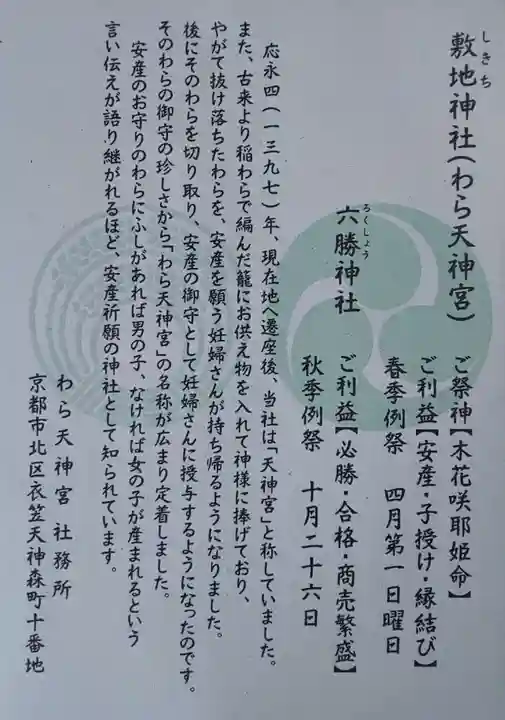 敷地神社(わら天神宮)
しきち
ご祭神【木花咲耶姫命】
ご利益【安産・子授け・縁結び】
春季例祭 四月第一日曜日
六勝神社
ろくしょう
ご利益【必勝・合格・商売繁盛】
秋季例祭 十月二十六日
応永四(一三九七)年、現在地へ遷座後、当社は「天神宮」と称していました。
また、古来より稲わらで編んだ籠にお供え物を入れて神様に捧げており、
やがて抜け落ちたわらを、安産を願う妊婦さんが持ち帰るようになりました。
後にそのわらを切り取り、安産の御守として妊婦さんに授与するようになったのです。
そのわらの御守の珍しさから「わら天神宮」の名称が広まり定着しました。
安産のお守りのわらにふしがあれば男の子、なければ女の子が産まれるという
言い伝えが語り継がれるほど、安産祈願の神社として知られています。
わら天神宮 社務所
京都市北区衣笠天神森町十番地